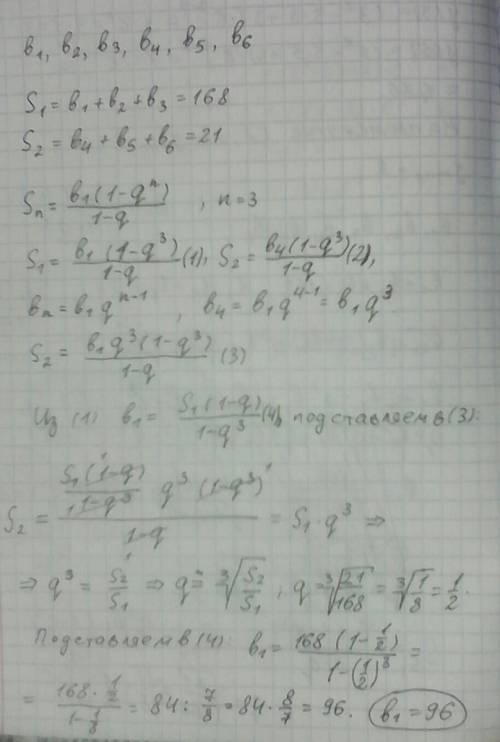 b₁, b₂, b₃, b₄, b₅, b₆
S₁ = b₁ + b₂ + b₃ = 168
S₂ = b₄ + b₅ + b₆ = 21
Sₙ = b₁(1-qⁿ)/(1-q), n=3
S₁ = b₁(1-q³)/(1-q) (1), S₂ = b₄(1-q³)/(1-q) (2),
bₙ = b₁qⁿ⁻¹, b₄ = b₁q⁴⁻¹ = b₁q³.
S₂ = b₁q³(1-q³)/(1-q) (3)
Из (1) b₁ = S₁(1-q)/(1-q³) (4), подставляем в (3):
S₂ = (S₁(1-q)/(1-q³) q³(1-q³))/(1-q) = S₁·q³ ⇒
⇒ q³ = S₂/S₁ ⇒ q = ∛(S₂/S₁), q = ∛(21/168) = ∛(1/8) = 1/2.
Подставляем в (4): b₁ = 168(1-1/2)/(1-(1/2)³) =
= (168·1/2)/(1-1/8) = 84 : 7/8 = 84·8/7 = 96. b₁ = 96